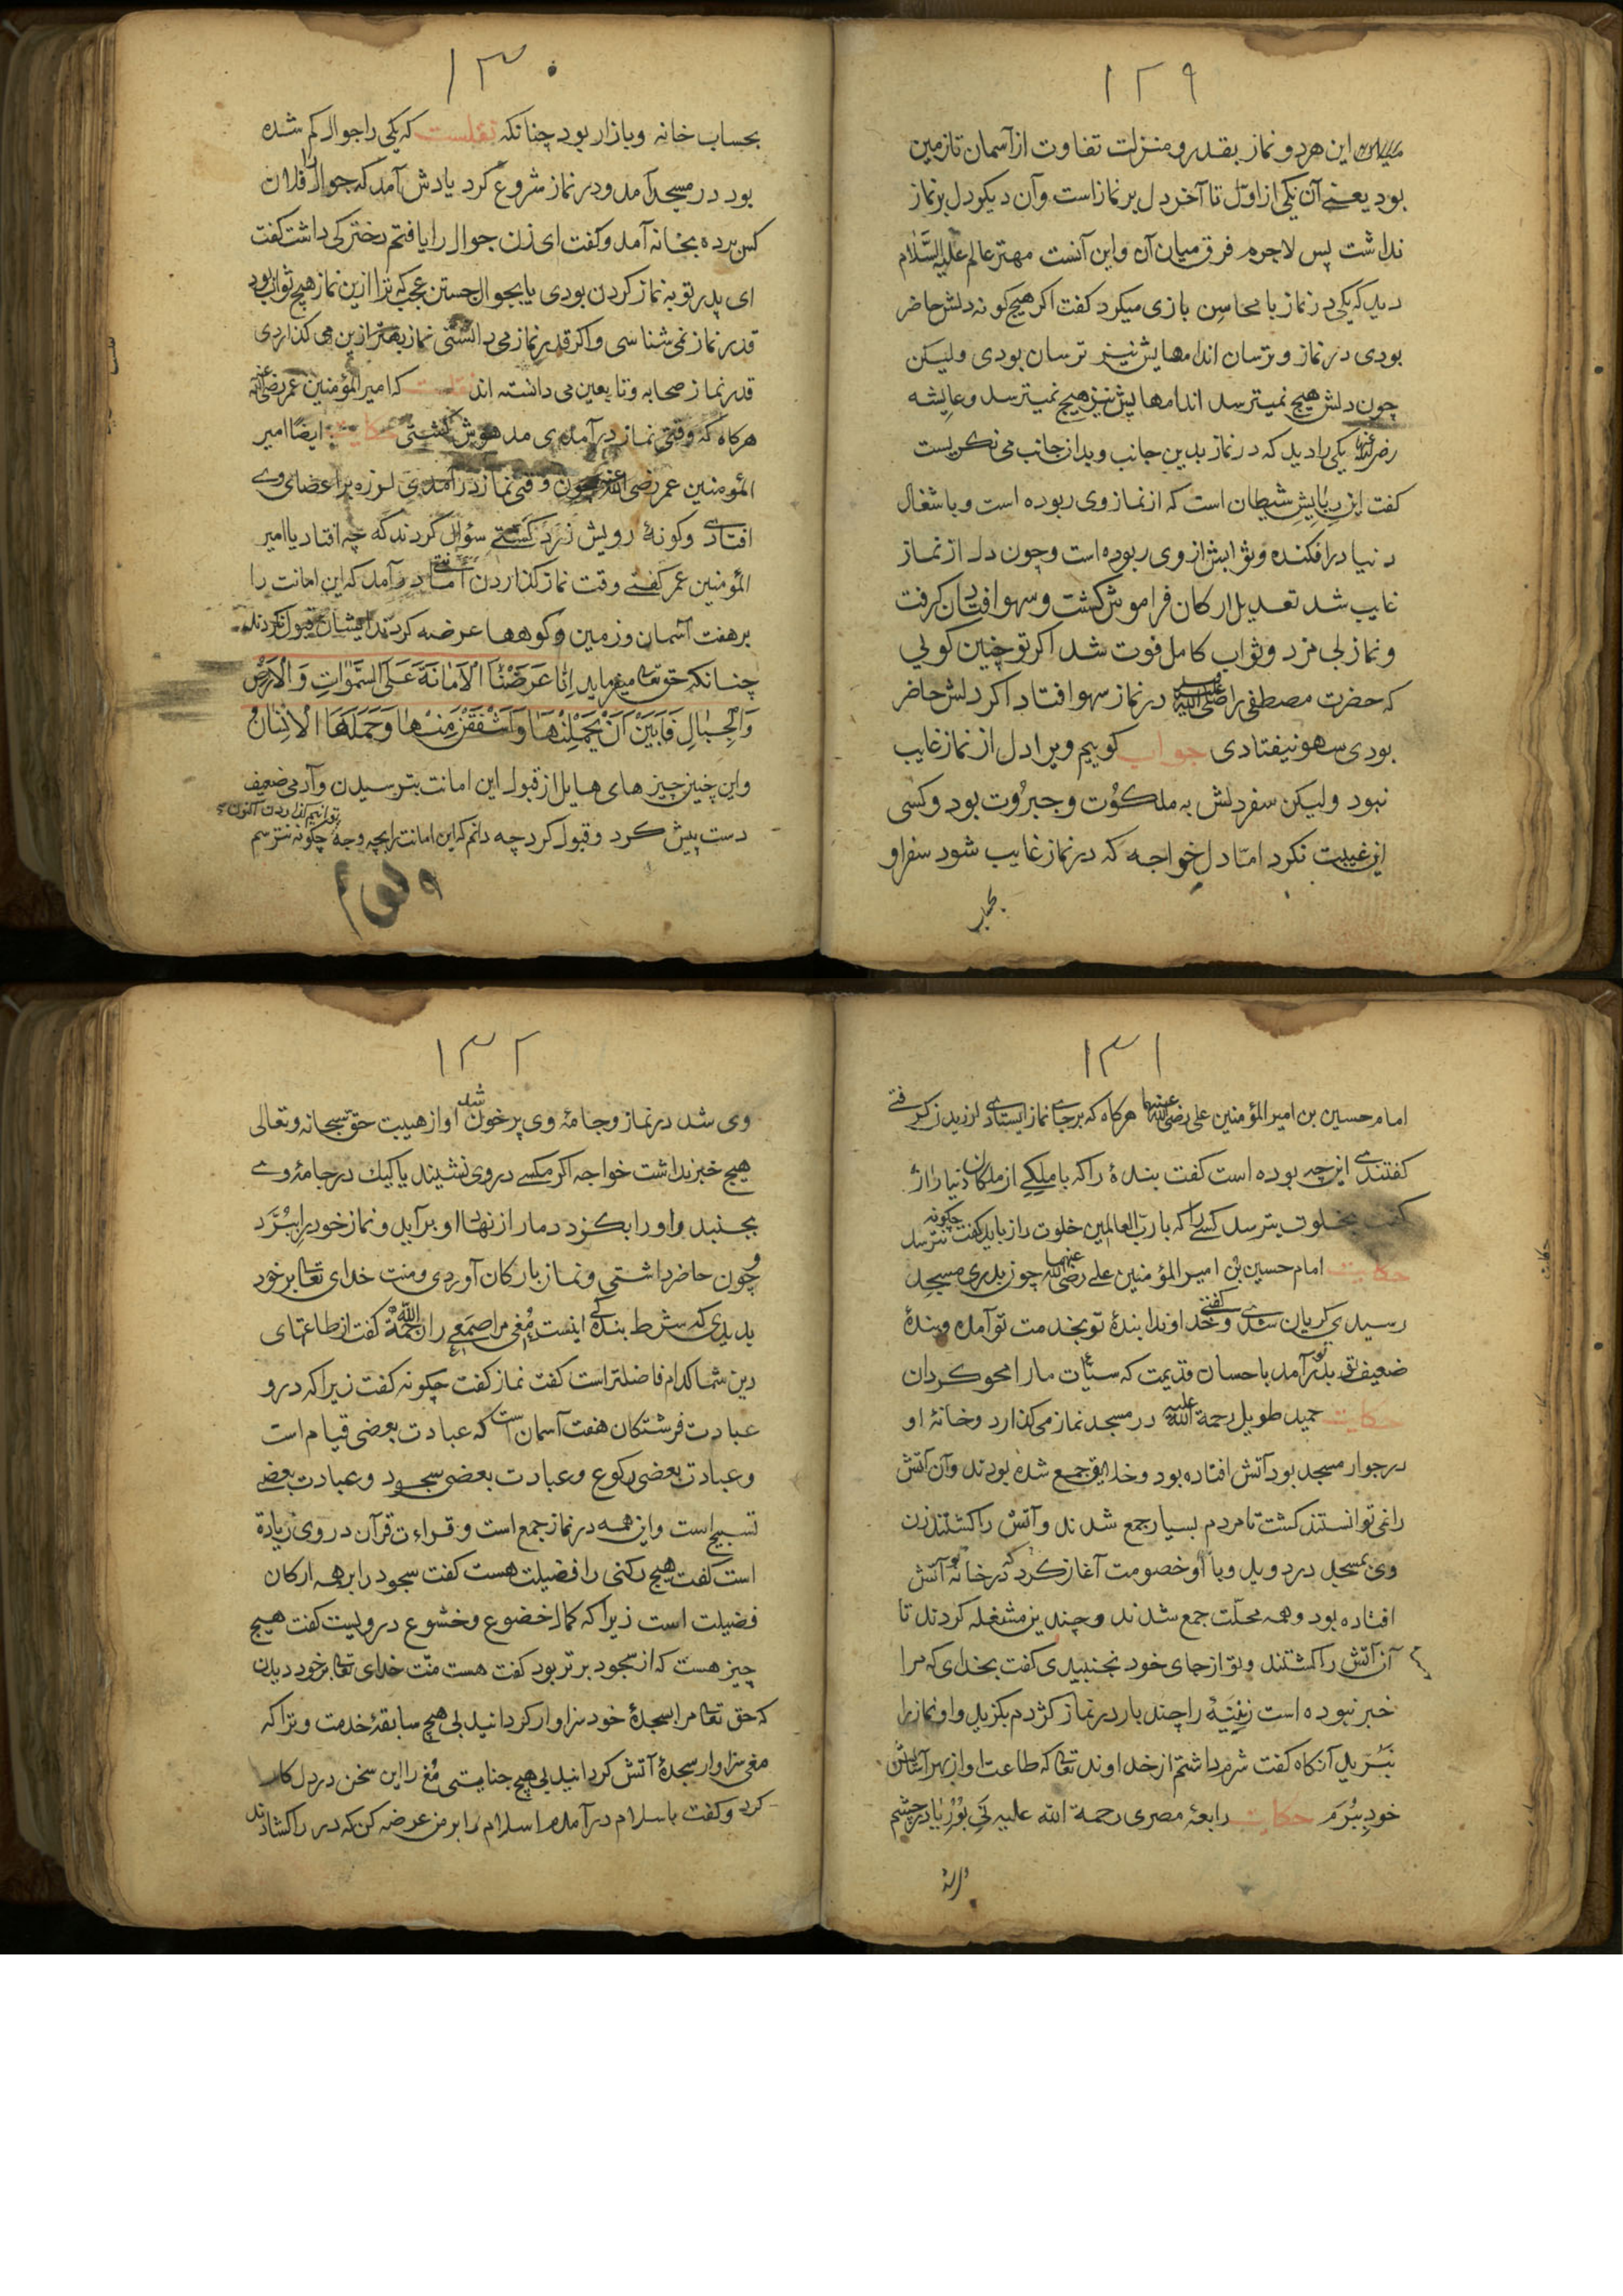 ١٢٩
میان این هر دو نماز بقدر و منزلت تفاوت از آسمان تا زمین
بود یعنے آن یکی از اوّل تا آخر دل بر نماز است وآن دیکر دل بر نماز
نداشت پس لاجرم فرق میان آن واین آنست مهتر عالم علیه السّلام
دید که یکی در نماز با محاسن بازی میکرد کفت اکر هیچ کونه دلش حاضر
بودی در نماز و ترسان اندامهایش نیز ترسان بودی ولیکن
چون دلش هیچ نمیترسد اندامهایش نیز هیچ نمیترسد وعایشه
رضی الله عنها یکی را دید که در نماز بدین جانب وبدان جانب می نکریست
کفت این ربایش شیطان است که از نماز وی ربوده است وباشغال
دنیا در افکنده وثوابش از وی ربوده است وچون دل از نماز
غایب شد تعدیل ارکان فراموش کشت وسهو افتادن کرفت
ونماز بی مزد وثواب کامل فوت شد اکر تو چنین کویی
که حضرت مصطفی را صلی الله علیه در نماز سهو افتاد اکر دلش حاضر
بودی سهو نیفتادی جواب کوییم ویرا دل از نماز غایب
نبود ولیکن سفر دلش به ملکوُت وجبرُوت بود وکسی
این غیبت نکرد امّا دل خواجه که در نماز غایب شود سفر او
بحساب
١٣٠
بحساب خانه وبازار بود چنانکه نقلست که یکی را جوال کم شده
بود در مسجد آمد ودر نماز شروع کرد یادش آمد که جوال را فلان
کس برده بخانه آمد وکفت ای زن جوال را یافتم دخترکی داشت کفت
ای پدر تو به نماز کردن بودی یا بجوال جستن عجب که ترا ازین نماز هیچ ثواب بود
قدر نماز نمی شناسی واکر قدر نماز می دانستی نماز بهتر ازین می کذاردی
قدر نماز صحابه وتابعین می دانسته اند نقلست که امیر المؤمنین عمر رضی الله عنه
هرکاه که وقتی نماز در آمدی مدهوش کشتی حکایت ایضًا امیر
المؤمنین عمر رضی الله عنه چون وقتی نماز در آمدی لرزه بر اعضای وے
افتادے وکونهٔ رویش زرد کشتے سؤال کردند که چه افتاد یا امیر
المؤمنین عمر کفتے وقت نماز کذاردن امانتے در آمد که این امانت را
برهفت آسمان وزمین وکوهها عرضه کردند ایشان قبول نکردند
چنانکه حق تعالی میفرماید اِنَّا عَرَضْنَا الْاَمَانَةَ عَلَى السَّمٰوَاتِ وَالْاَرْضِ
وَالْجِبَالِ فَاَبَيْنَ اَنْ يَحْمِلْنَهَا وَاَشْفَقْنَ مِنْهَا وَحَمَلَهَا الْاِنْسَانُ
واین چنین چیز های هایل از قبول این امانت بترسیدن وآدمی ضعیف
دست پیش کرد وقبول کرد چه دانم که این امانت را بچه وجه توانیم کذاردن اکنون چکونه نترسم
١٣١
امام حسین بن امیر المؤمنین علی رضی الله عنهما هرکاه که بر جاے نماز ایستادے لرزیدن کرفتے
کفتندے این چه بوده است کفت بندهٔ را که با ملکے از ملکان دنیا راز
کفت بخلوت بترسد کسے را که با ربّ العالمین خلوت راز باید کفت چکونه نترسد
حکایت امام حسین بن امیر المؤمنین علے رضی الله عنهما چون بدر مسجد
رسیدی کریان شدے وکفتے خداوندا بندهٔ تو بخدمت تو آمده وبندهٔ
ضعیف تو بدر تو آمد باحسان قدیمت که سیّئات مارا محو کردان
حکایت حمید طویل رحمة الله علیه در مسجد نماز می کذارد وخانهٔ او
در جوار مسجد بود آتش افتاده بود وخلایق جمع شده بودند وآن آتش
را نمی توانستند کشت تا مردم بسیار جمع شدند وآتش را کشتند زن
وی بمسجد در دوید وبا او خصومت آغاز کرد که در خانهٔ تو آتش
افتاده بود وهمه محلّت جمع شدند وچندین مشغله کردند تا
آن آتش را کشتند وتو از جای خود نجنبیدی کفت بخدای که مرا
خبر نبوده است زنِینَهٔ را چند بار در نماز کژدم بکزید واو نماز را
نَبُرِید آنکاه کفت شرم داشتم از خداوند تعالی که طاعت او از بهر آسایش
خود بِبُرَم حکایت رابعهٔ مصری رحمة الله علیه نَی بُوْرِیا در چشم
١٣٢
وی شد در نماز وجامهٔ وی پر خون شد او از هیبت حق سبحانه وتعالی
هیچ خبر نداشت خواجه اکر مکسے در وی نشیند یا کیك در جامهٔ وے
بجنبد واو را بکزد دمار از نهاد او بر آید ونماز خود را بِبُرَّد
وچون حاضر داشتی ونماز بارکان آوردی ومنت خدای تعالی بر خود
بدیدی که شرط بندکے اینست مُغی مر اصمَعی را رحمة الله کفت از طاعتهای
دین شما کدام فاضلتر است کفت نماز کفت چکونه کفت زیرا که درو
عبادت فرشتکان هفت آسمان است که عبادت بعضی قیام است
وعبادت بعضی رکوع وعبادت بعضی سجود وعبادت بعضے
تسبیح است واین همه در نماز جمع است وقراءت قرآن در وی زیادة
است کفت هیچ رکنی را فضیلت هست کفت سجود را بر همه ارکان
فضیلت است زیرا که کمال خضوع وخشوع در ویست کفت هیچ
چیز هست که از سجود برتر بود کفت هست منّت خدای تعالی بر خود دیدن
که حق تعالی مرا سجدهٔ خود سزاوار کردانید بی هیچ سابقهٔ خدمت وترا که
مغی سزاوار سجدهٔ آتش کردانید بی هیچ جنایتی مُغ را این سخن در دل کار
کرد وکفت باسلام در آمدم اسلام را بر من عرضه کن که در را کشادند